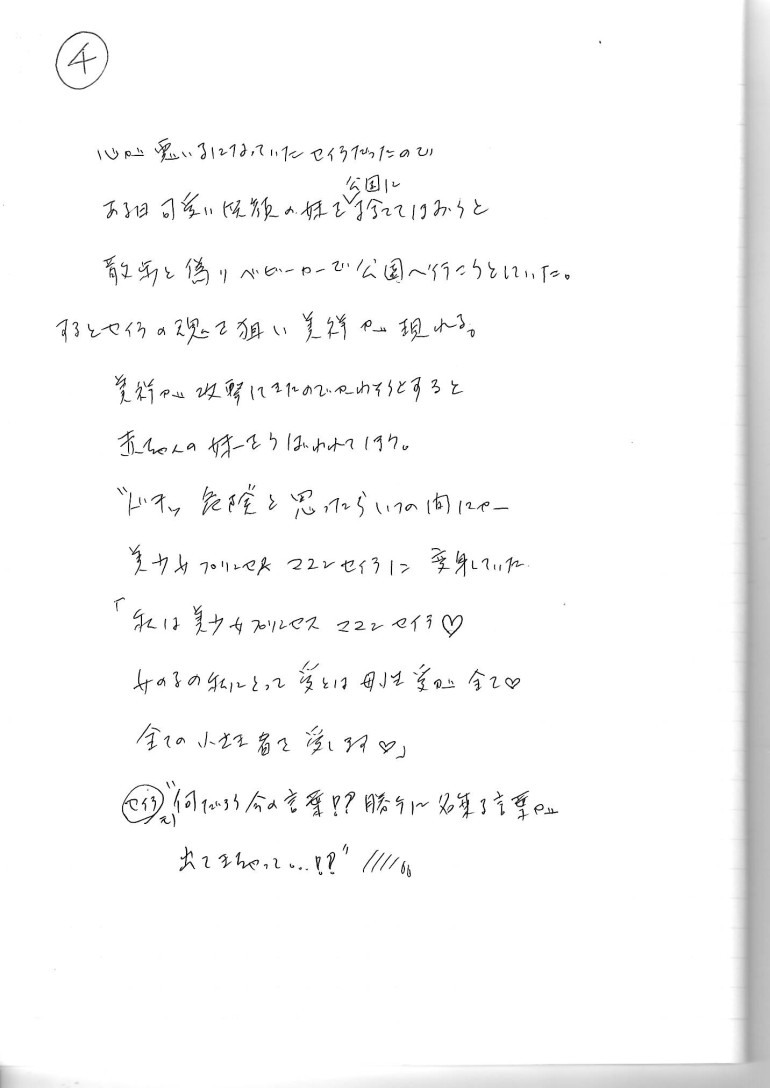 ④
心が悪い子になっていたセイラだったので
ある日可愛い 笑顔の妹を公園に捨ててはおろうと
散歩と偽りベビーカーで公園へ行こうとしていた。
するとセイラの魂を狙い美祥が現れる。
美祥が攻撃してきたのでかわそうとすると
赤ちゃんの妹をうばわれて
“ドキッ 危険”と思ったらいつの間にかー
美少女プリンセス ママン セイラに 変身していた
「私は美少女プリンセス ママン セイラ♡
女の子の私にとって愛とは母性愛が全て♡
全ての小さき者を愛します♡」
セイラ “何だろう今の言葉!? 勝手に名乗る言葉が
出てきちゃって…!?”